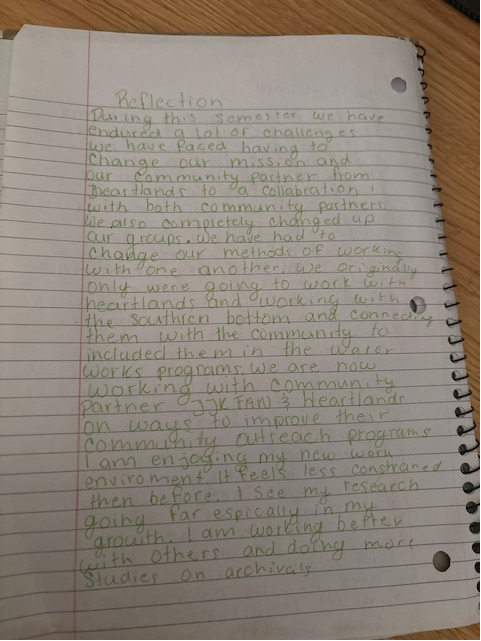 Reflection
During this semester we have
endured a lot of challenges
we have faced having to
Change our mission and
our community partner from
Heartlands to a collabration
with both community partners
We also completely changed up
our groups. We have had to
change our methods of working
with one another. We originally
only were going to work with
heartlands and working with
the southern bottom and connecting
them with the community to
included them in the water
works programs. We are now
working with community
Partner JJK FAN & Heartlands
on ways to improve their
community outreach programs
I am enjoying my new work
enviroment It feels less constraned
then before. I see my research
going far espically in my
growth. I am working better
with others and doing more
Studies on archivals